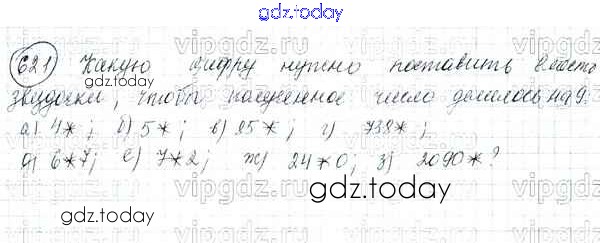 gdz.today
621 Какую цифру нужно поставить вместо
звездочки, чтобы полученное число делилось на 9:
а) 4*; б) 5*; в) 25*; г) 738*;
д) 6*7; е) 7*2; ж) 24*0; з) 2090*?
vipgdz.ru
gdz.today
gdz.today
gdz.today